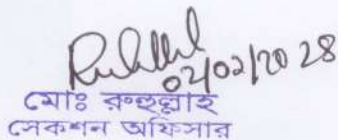 02/02/2028
মোঃ রুহুল্লাহ
সেকশন অফিসার